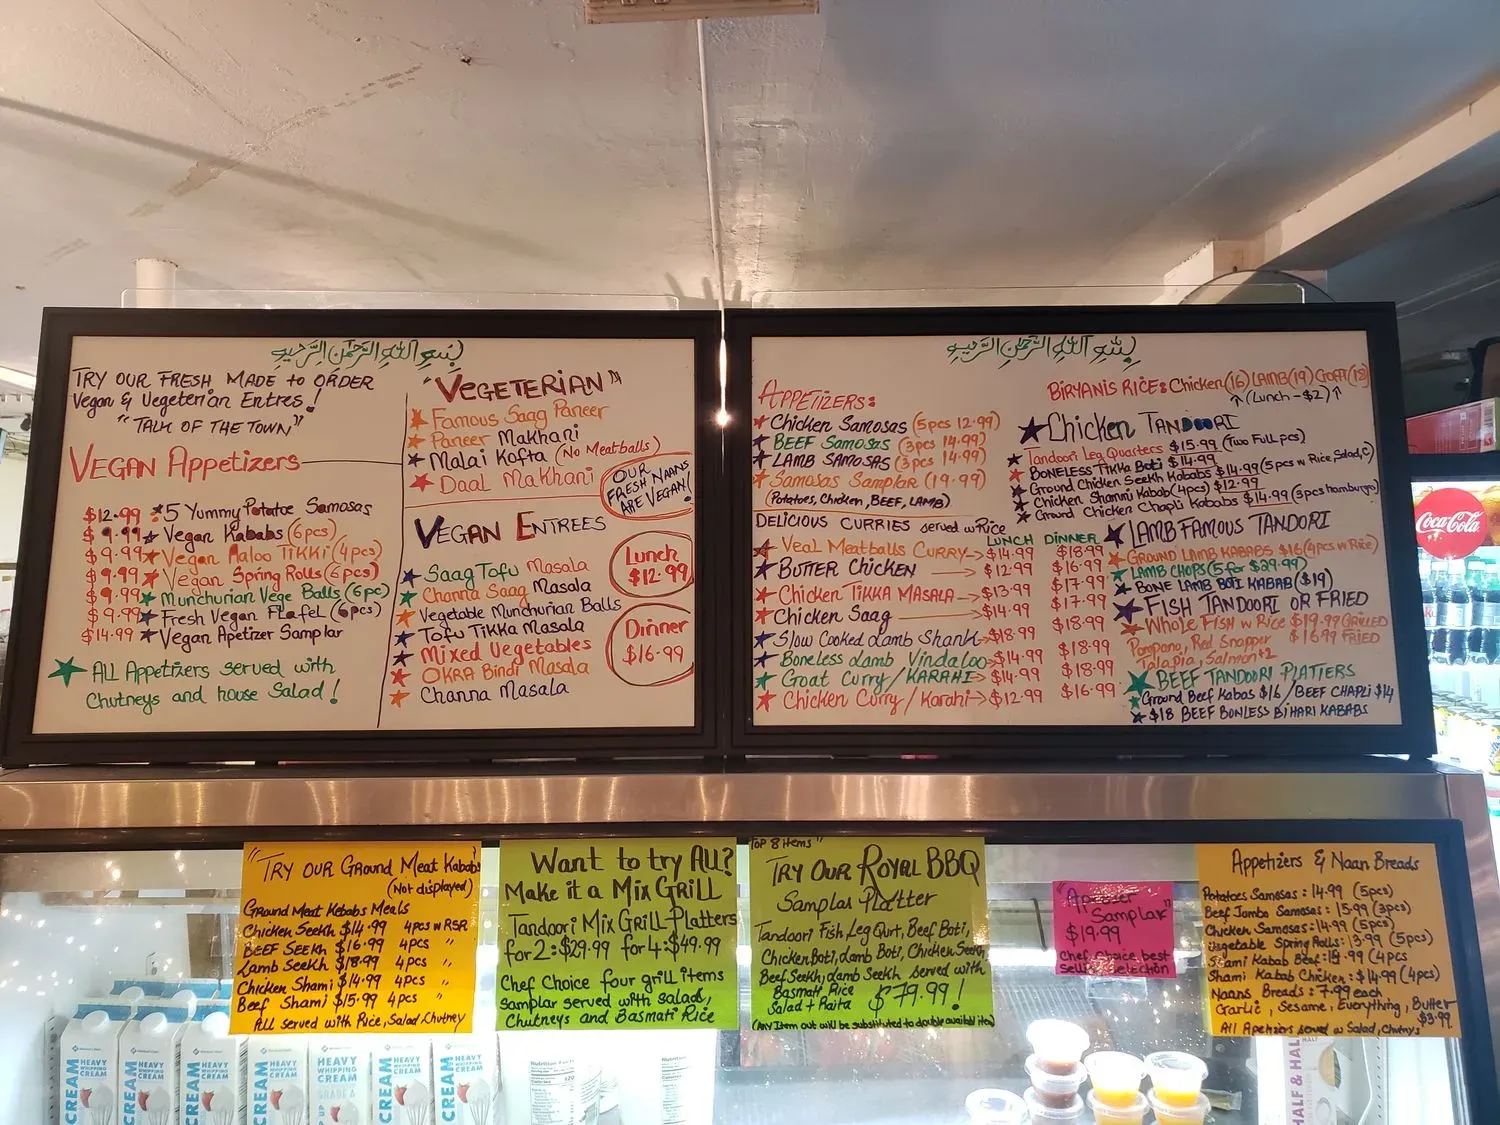 بسم الله الرحمن الرحيم
TRY OUR FRESH MADE to ORDER
Vegan & Vegeterian Entres!
"TALK OF THE TOWN"
VEGAN Appetizers
$12.99 5 Yummy Potatoe Samosas
$9.99 Vegan Kababs (6pcs)
$9.99 Vegan Aaloo TIKKI (4pcs)
$9.99 Vegan Spring Rolls (6pcs)
$9.99 Munchurian Vege Balls (6pc)
$9.99 Fresh Vegan Flafel (6pcs)
$14.99 Vegan Apetizer Samplar
ALL Appetizers served with
Chutneys and house Salad!
"VEGETERIAN"
Famous Saag Paneer
Paneer Makhani
Malai Kofta (No Meatballs)
Daal Makhani
OUR
FRESH NAANS
ARE VEGAN!
VEGAN ENTREES
Saag Tofu Masala
Channa Saag Masala
Vegetable Munchurian Balls
Tofu Tikka Masala
Mixed Vegetables
OKRA Bindi Masala
Channa Masala
Lunch
$12.99
Dinner
$16.99
بسم الله الرحمن الرحيم
APPETIZERS:
Chicken Samosas (5pcs 12.99)
BEEF Samosas (3pcs 14.99)
LAMB SAMOSAS (3pcs 14.99)
Samosas Samplar (19.99)
(Potatoes, Chicken, BEEF, LAMB)
DELICIOUS CURRIES served w Rice
LUNCH DINNER
Veal Meatballs CURRY $14.99 $18.99
BUTTER Chicken $12.99 $16.99
Chicken TIKKA MASALA $13.99 $17.99
Chicken Saag $14.99 $17.99
Slow Cooked Lamb Shank $18.99 $18.99
Boneless Lamb Vindaloo $14.99 $18.99
Goat Curry/KARAHI $14.99 $18.99
Chicken Curry/Karahi $12.99 $16.99
BIRYANIS RICE: Chicken (16) LAMB (19) GOAT (18)
↑ (Lunch -$2) ↑
Chicken TANDOORI
Tandoori Leg Quarters $15.99 (Two Full pcs)
BONELESS Tikka Boti $14.99
Ground Chicken Seekh Kababs $14.99 (5pcs w Rice, Salad, C)
Chicken Shammi Kabab (4pcs) $12.99
Ground Chicken Chapli Kababs $14.99 (3pcs hamburgo)
LAMB FAMOUS TANDORI
GROUND LAMB KABABS $16 (4pcs w Rice)
LAMB CHOPS (5 for $29.99)
BONE LAMB BOTI KABAB ($19)
FISH TANDOORI OR FRIED
WHOLE FISH w Rice $19.99 GRILLED
$16.99 FRIED
Pompano, Red Snapper
Talapia, Salmon+2
BEEF TANDOORI PLATTERS
Ground Beef Kabas $16 / BEEF CHAPLI $14
$18 BEEF BONLESS BIHARI KABABS
"TRY OUR Ground Meat Kababs
(Not displayed)
Ground Meat Kebabs Meals
Chicken Seekh $14.99 4pcs w RSR
BEEF SEEKH $16.99 4pcs "
Lamb Seekh $18.99 4pcs "
Chicken Shami $14.99 4pcs "
Beef Shami $15.99 4pcs "
ALL served with Rice, Salad Chutney
Want to try ALL?
Make it a Mix GRILL
Tandoori Mix GRILL Platters
for 2:$29.99 for 4:$49.99
Chef Choice four grill items
samplar served with salads,
Chutneys and Basmati Rice
Top 8 items"
TRY OUR ROYAL BBQ
Samplar Platter
Tandoori Fish, Leg Qurt, Beef Boti,
Chicken Boti, Lamb Boti, Chicken Seekh,
Beef Seekh, Lamb Seekh served with
Basmati Rice
Salad + Raita $79.99!
(Any Item out will be substituted to double availabl item)
Samplar"
$19.99
Chef choice best
selection
Appetizers & Naan Breads
Potatoes Samosas: 14.99 (5pcs)
Beef Jumbo Samosas: 15.99 (3pcs)
Chicken Samosas: 14.99 (5pcs)
Vegetable Spring Rolls: 13.99 (5pcs)
Shami Kabab Beef: .99 (4pcs
Shami Kabab Chicken: $14.99 (4pcs)
Naans Breads: 7.99 each
Garlic, Sesame, Everything, Butter
$3.99
All Apetizers served w Salad, Chutnys
Coca-Cola
HEAVY
WHIPPING
CREAM
CREAM
HEAVY
WHIPPING
CREAM
CREAM
HEAVY
WHIPPING
CREAM
CREAM
HEAVY
WHIPPING
CREAM
CREAM
HEAVY
WHIPPING
CREAM
HEAVY
WHIPPING
CREAM
CREAM
HEAVY
WHIPPING
CREAM
CREAM
Nutrition Facts
HALF & HALF